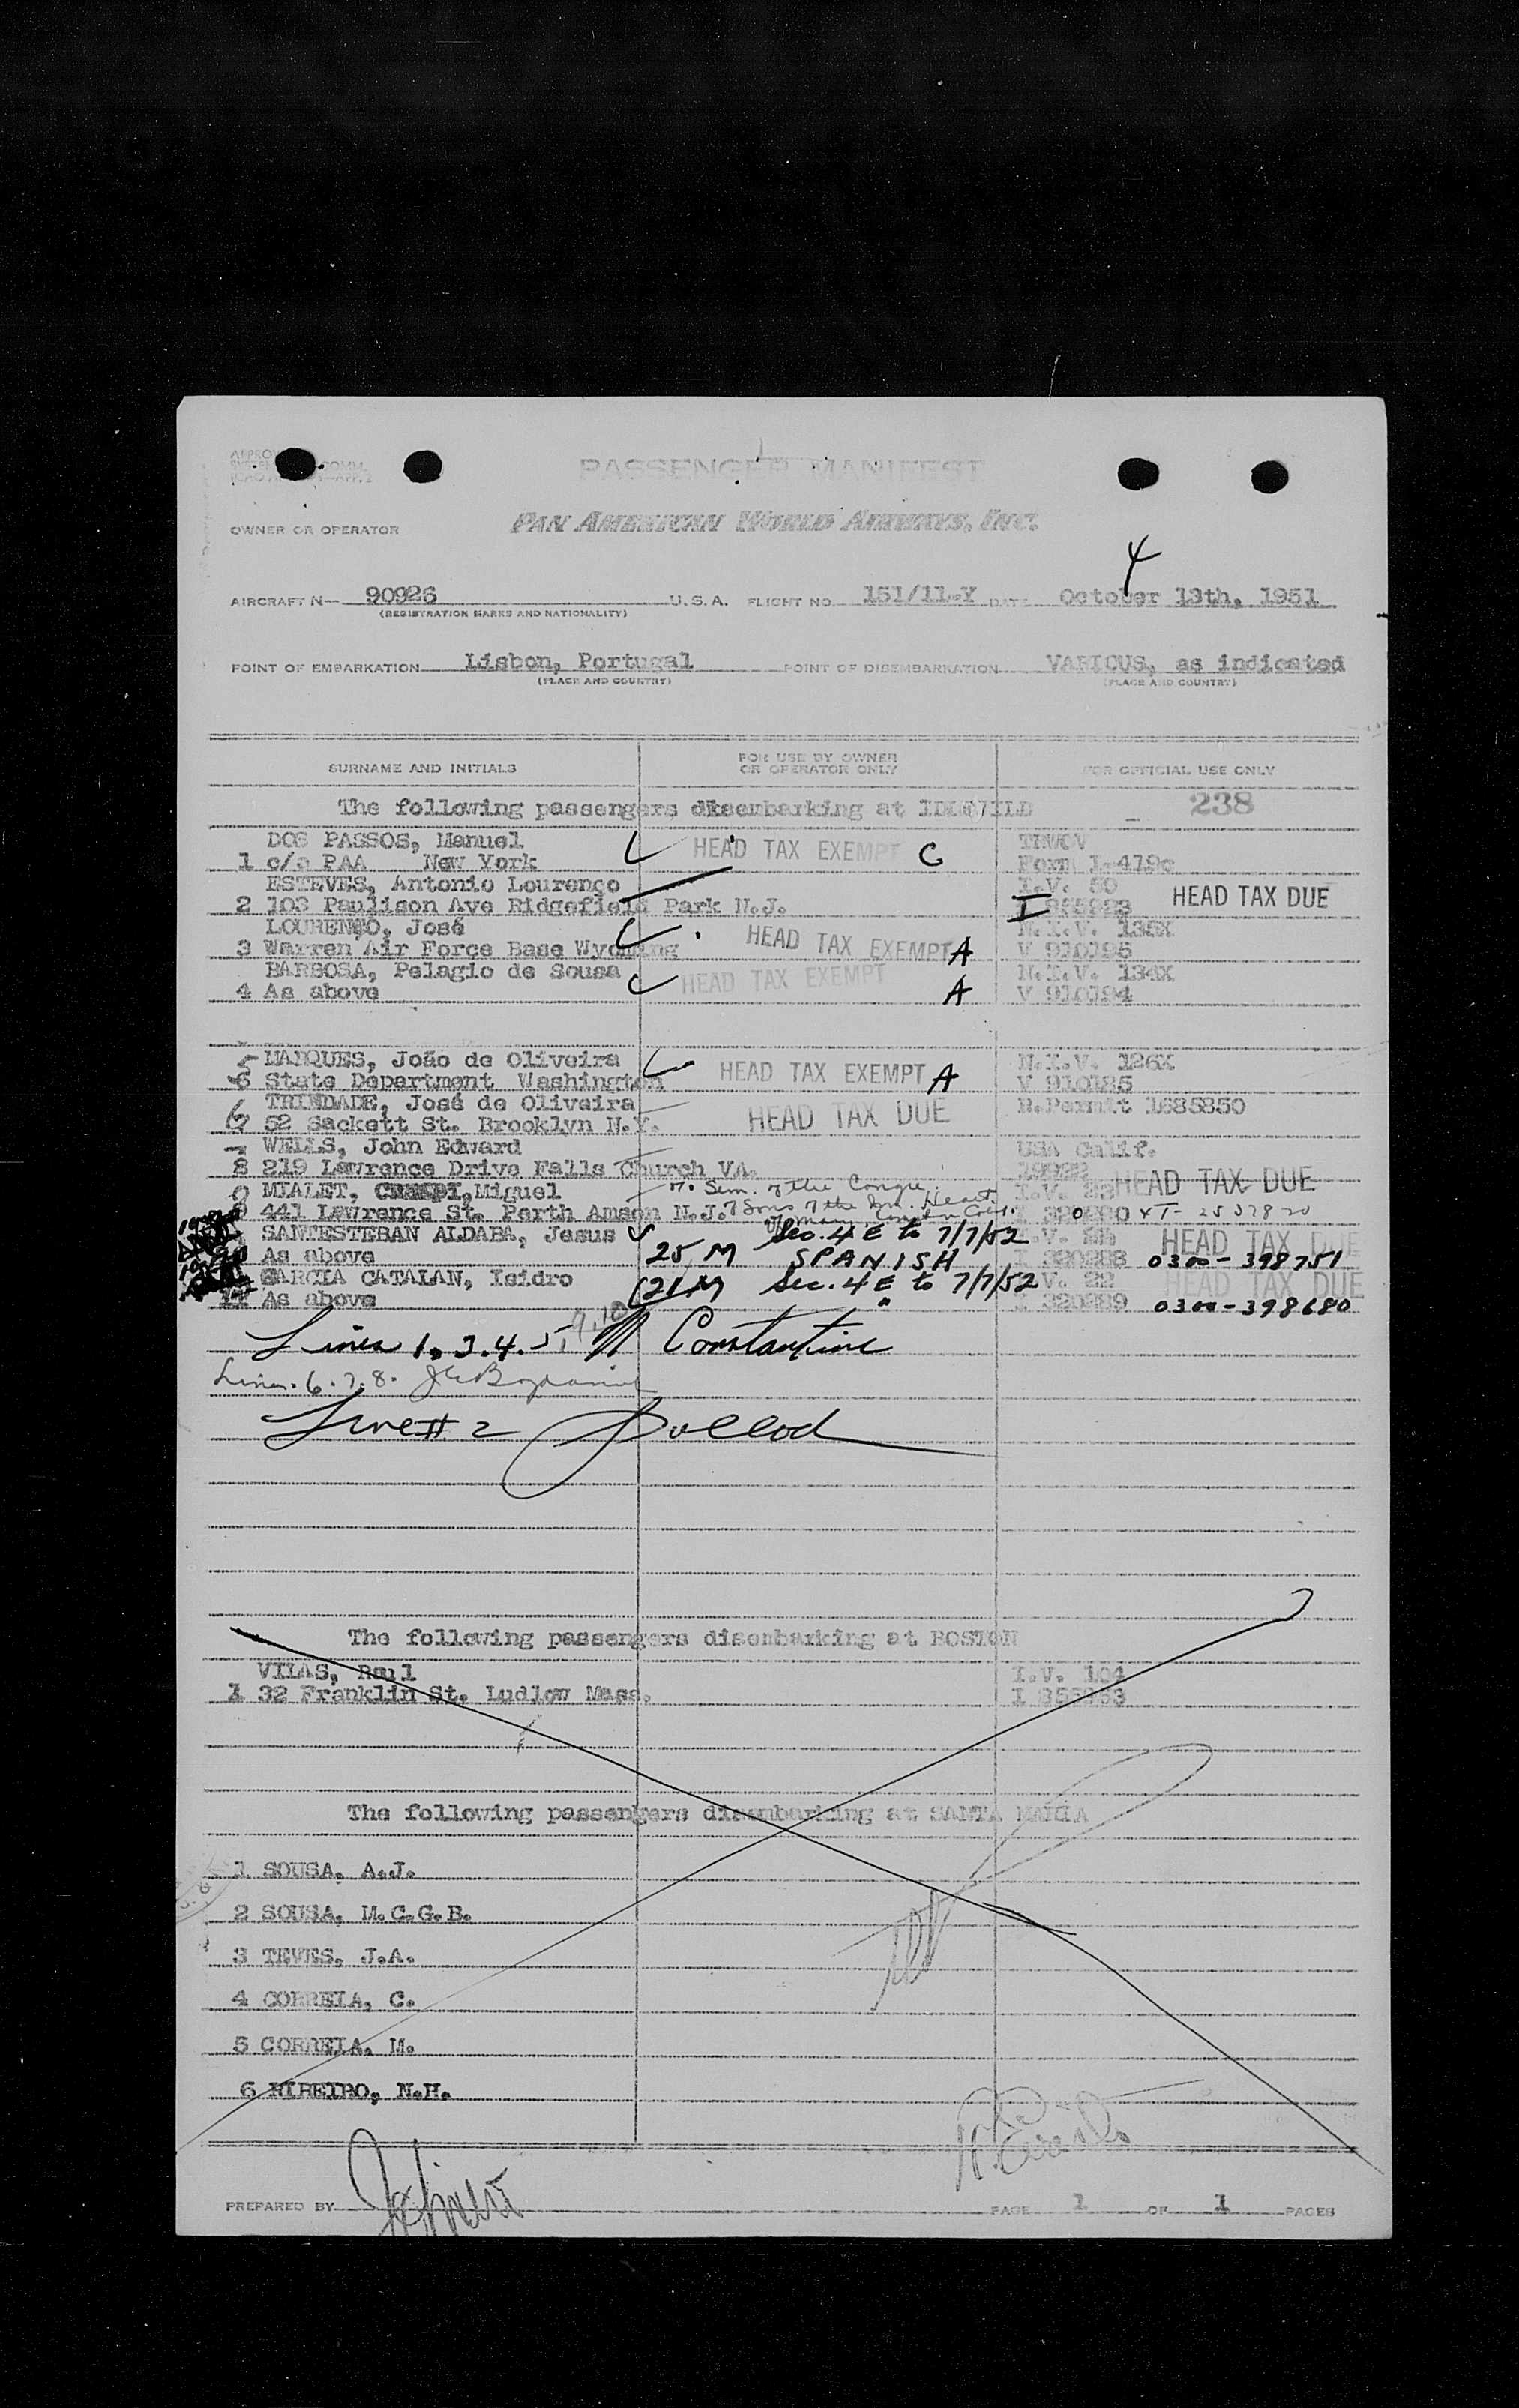 PASSENGER MANIFEST
OWNER OR OPERATOR PAN AMERICAN WORLD AIRWAYS, INC.
4
AIRCRAFT N— 90926 U.S.A. FLIGHT NO. 151/11.Y DATE October 13th, 1951
(REGISTRATION MARKS AND NATIONALITY)
POINT OF EMBARKATION Lisbon, Portugal POINT OF DISEMBARKATION VARIOUS, as indicated
(PLACE AND COUNTRY) (PLACE AND COUNTRY)
SURNAME AND INITIALS FOR USE BY OWNER OR OPERATOR ONLY FOR OFFICIAL USE ONLY
The following passengers disembarking at IDLEWILD 238
DOS PASSOS, Manuel HEAD TAX EXEMPT C TRWOV
1 c/o PAA New York Form I-419c
ESTEVES, Antonio Lourenço I.V. 50 HEAD TAX DUE
2 103 Paulison Ave Ridgefield Park N.J. I
LOURENÇO, José HEAD TAX EXEMPT A N.I.V. 135X
3 Warren Air Force Base Wyoming V 910195
BARBOSA, Pelagio de Sousa HEAD TAX EXEMPT N.I.V. 134X
4 As above A V 910194
5 MARQUES, João de Oliveira HEAD TAX EXEMPT A N.I.V. 126X
State Department Washington V 910185
6 TRINDADE, José de Oliveira HEAD TAX DUE R.Permit 1685850
52 Sackett St. Brooklyn N.Y.
7 WELLS, John Edward USA Calif.
8 219 Lawrence Drive Falls Church VA. 19922 HEAD TAX DUE
MIALET, Miguel Sem. of the Congre. I.V. 23
441 Lawrence St. Perth Amson N.J. of Sons of the Im. Heart
SANTESTEBAN ALDABA, Jesus Sec. 4 E to 7/7/52 I.V. HEAD TAX DUE
As above 25 M SPANISH I 320288 0300-398751
GARCIA CATALAN, Isidro 21 M Sec. 4 E to 7/7/52 I.V. 22 HEAD TAX DUE
11 As above " I 320289 0300-398680
Lines 1. 3. 4. 5, 9, 10 Constantine
Lines. 6. 7. 8.
Line # 2
The following passengers disembarking at BOSTON
VILAS, Raul I.V. 104
1 32 Franklin St. Ludlow Mass.
The following passengers disembarking at SANTA MARIA
1 SOUSA, A.J.
2 SOUSA, M.C.G.B.
3 TEVES, J.A.
4 CORREIA, C.
5 CORREIA, M.
6 RIBEIRO, N.H.
PREPARED BY PAGE 1 OF 1 PAGES